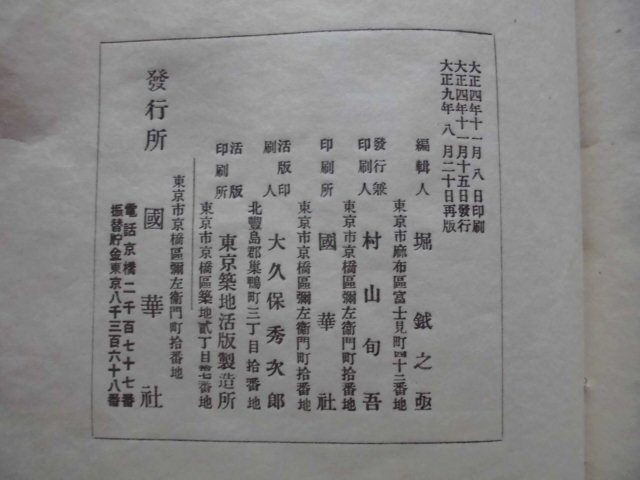 大正四年十一月八日印刷
大正四年十一月十五日發行
大正九年八月二十日再版
編輯人 堀鉞之丞
東京市麻布區富士見町四十三番地
發行兼印刷人 村山旬吾
東京市京橋區彌左衞門町拾番地
印刷所 國華社
東京市京橋區彌左衞門町拾番地
活版印刷人 大久保秀次郎
北豐島郡巢鴨町三丁目拾番地
活版印刷所 東京築地活版製造所
東京市京橋區築地貳丁目拾七番地
發行所 國華社
東京市京橋區彌左衞門町拾番地
電話京橋二千百七十七番
振替貯金東京八千三百六十八番